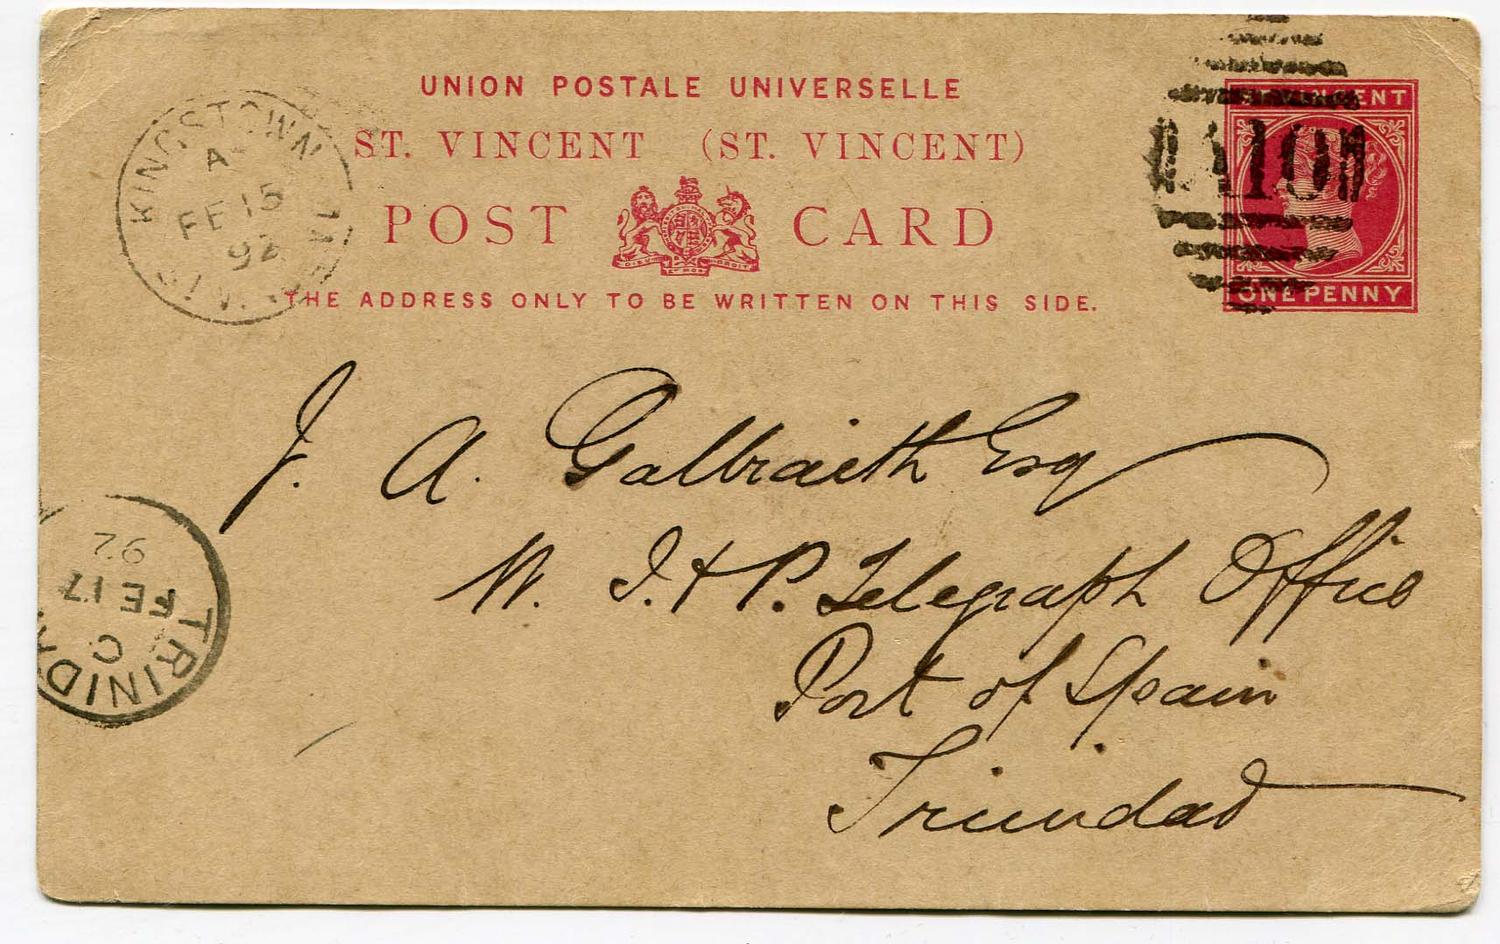 UNION POSTALE UNIVERSELLE
ST. VINCENT (ST. VINCENT)
POST CARD
DIEU ET MON DROIT
THE ADDRESS ONLY TO BE WRITTEN ON THIS SIDE.
ST VINCENT
ONE PENNY
A10
KINGSTOWN
A
FE 15
92
ST VINCENT
J. A. Galbraith Esq
W. I. & P. Telegraph Office
Port of Spain
Trinidad
TRINIDA
C
FE 17
92